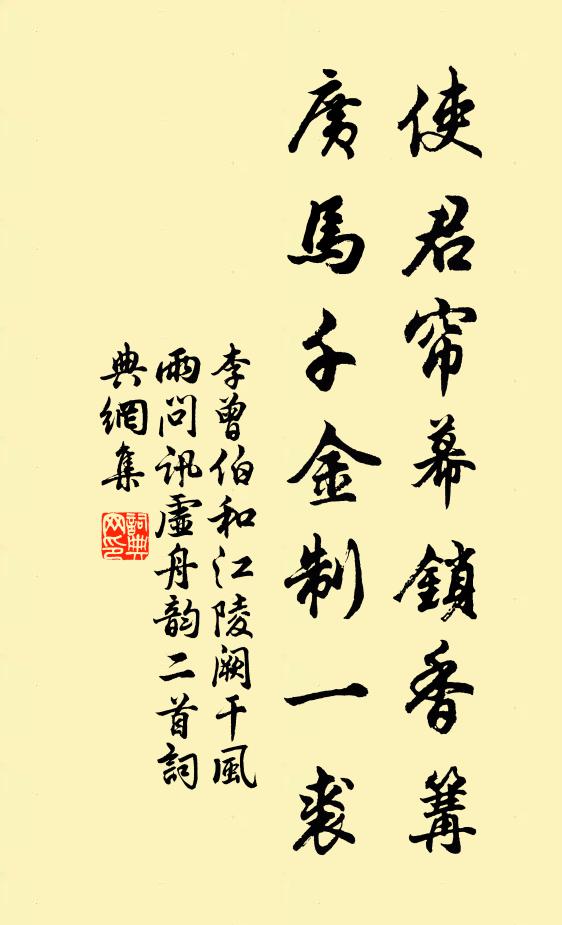 使君帘幕鎖香篝
廣馬千金制一裘
李曾伯和江陵阙干風
雨問訊虛舟韵二首詞
典網集
詞典網印